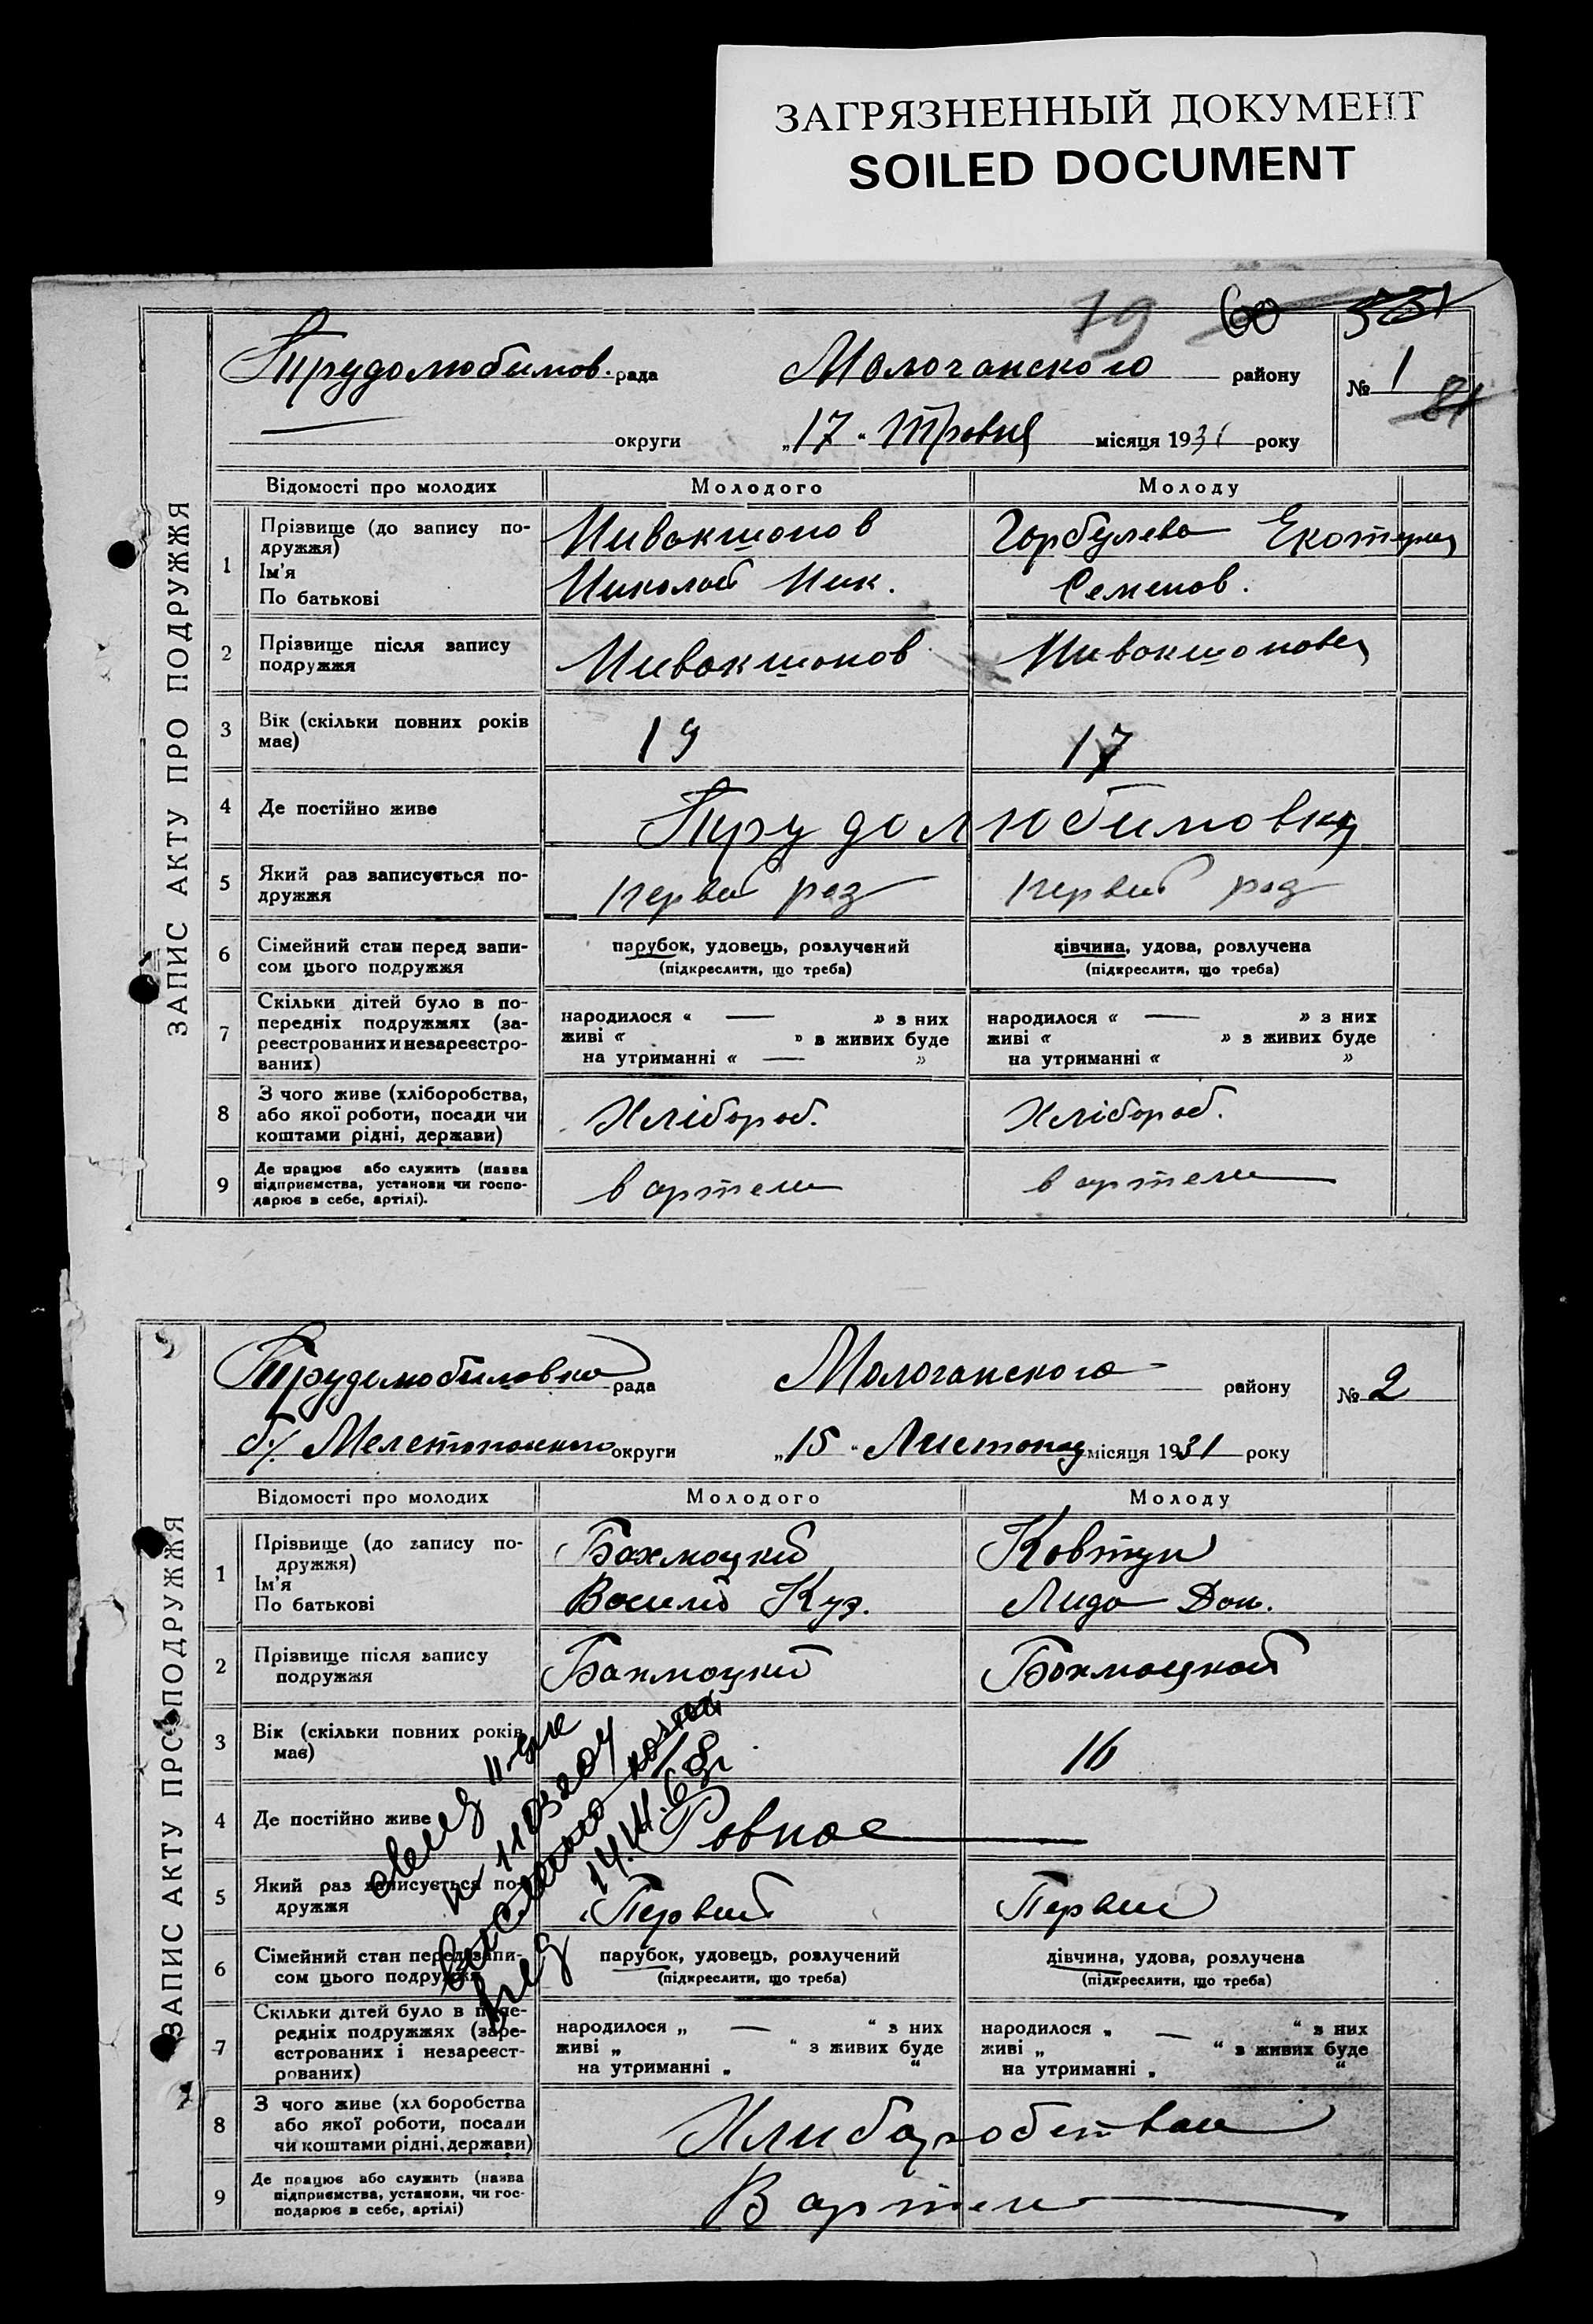 ЗАГРЯЗНЕННЫЙ ДОКУМЕНТ
SOILED DOCUMENT
19 60 531
Трудолюбимов. рада Молочанского району № 1
81
округи „17“ Травня місяця 1931 року
ЗАПИС АКТУ ПРО ПОДРУЖЖЯ
Відомості про молодих Молодого Молоду
1 Прізвище (до запису подружжя) Мивакшонов Горбулева Екатерина
Ім'я
По батькові Николай Ник. Семенов.
2 Прізвище після запису подружжя Мивакшонов Мивакшонова
3 Вік (скільки повних років має) 19 17
4 Де постійно живе Трудолюбимовка
5 Який раз записується подружжя первый раз первый раз
6 Сімейний стан перед записом цього подружжя парубок, удовець, розлучений дівчина, удова, розлучена
(підкреслити, що треба) (підкреслити, що треба)
7 Скільки дітей було в попередніх подружжях (зареєстрованих и незареєстрованих)
народилося « — » з них народилося « — » з них
живі « » в живих буде живі « » з живих буде
на утриманні « — » на утриманні « »
8 З чого живе (хліборобства, або якої роботи, посади чи коштами рідні, держави) Хлібороб. Хлібороб.
9 Де працює або служить (назва підприємства, установи чи господарює в себе, артілі). в артели в артели
Трудолюбимовка рада Молочанского району № 2
б/. Мелетопольского округи „15“ Листопад місяця 1931 року
ЗАПИС АКТУ ПРО ПОДРУЖЖЯ
Відомості про молодих Молодого Молоду
1 Прізвище (до запису подружжя) Бахмацкий Ковтун
Ім'я
По батькові Василий Куз. Лида Дан.
2 Прізвище після запису подружжя Бахмацкий Бахмацкая
3 Вік (скільки повних років має) 16
4 Де постійно живе Ровное
5 Який раз записується подружжя Первый Первый
6 Сімейний стан перед записом цього подружжя парубок, удовець, розлучений дівчина, удова, розлучена
(підкреслити, що треба) (підкреслити, що треба)
7 Скільки дітей було в попередніх подружжях (зареєстрованих і незареєстрованих)
народилося „ — “ з них народилося „ — “ з них
живі „ “ з живих буде живі „ “ з живих буде
на утриманні „ “ на утриманні „ “
8 З чого живе (хліборобства або якої роботи, посади чи коштами рідні, держави) Хлиборобством
9 Де працює або служить (назва підприємства, установи, чи господарює в себе, артілі) В артели